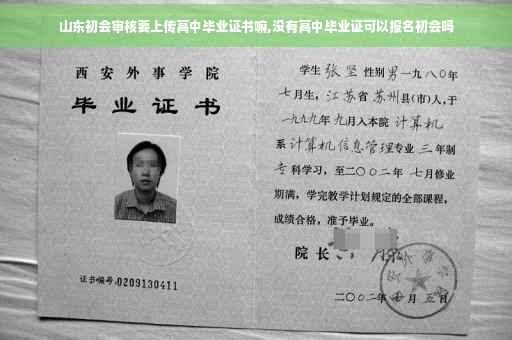 山东初会审核要上传高中毕业证书嘛,没有高中毕业证可以报名初会吗
西安外事学院
毕业证书
证书编号:0209130411
学生 张坚 性别 男 一九八〇年
七月生, 江苏省 苏州县(市)人,于
一九九九年 九月入本院 计算机
系 计算机信息管理专业 三年制
专科学习, 至二〇〇二年 七月修业
期满, 学完教学计划规定的全部课程,
成绩合格, 准予毕业。
院长
二〇〇二年 月五日